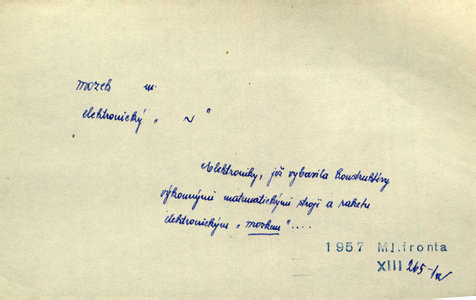 mozek m.
elektronický „ ~ "
Elektroniky, jež vybavila konstruktéry
výkonnými matematickými stroji a raketu
elektronickým „mozkem"....
1957 Ml.fronta
XIII 265-1